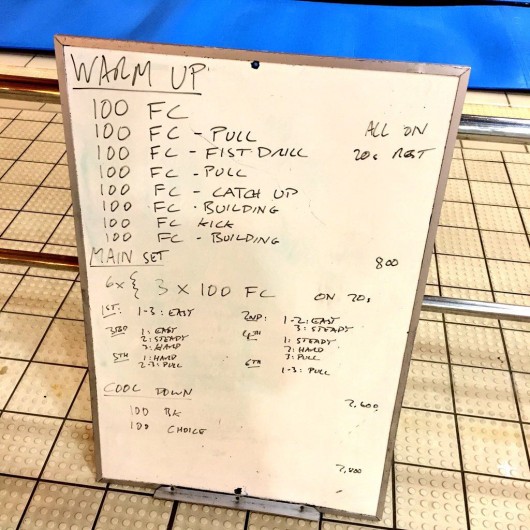 WARM UP
100 FC
100 FC - PULL ALL ON
100 FC - FIST DRILL 20s REST
100 FC - PULL
100 FC - CATCH UP
100 FC - BUILDING
100 FC KICK
100 FC - BUILDING
MAIN SET 800
6x { 3 x 100 FC ON 20s
1ST: 1-3: EASY 2ND: 1-2: EASY
3: STEADY
3RD 1: EASY 4TH 1: STEADY
2: STEADY 2: HARD
3: HARD 3: PULL
5TH 1: HARD 6TH
2-3: PULL 1-3: PULL
COOL DOWN 2,600
100 BK
100 CHOICE